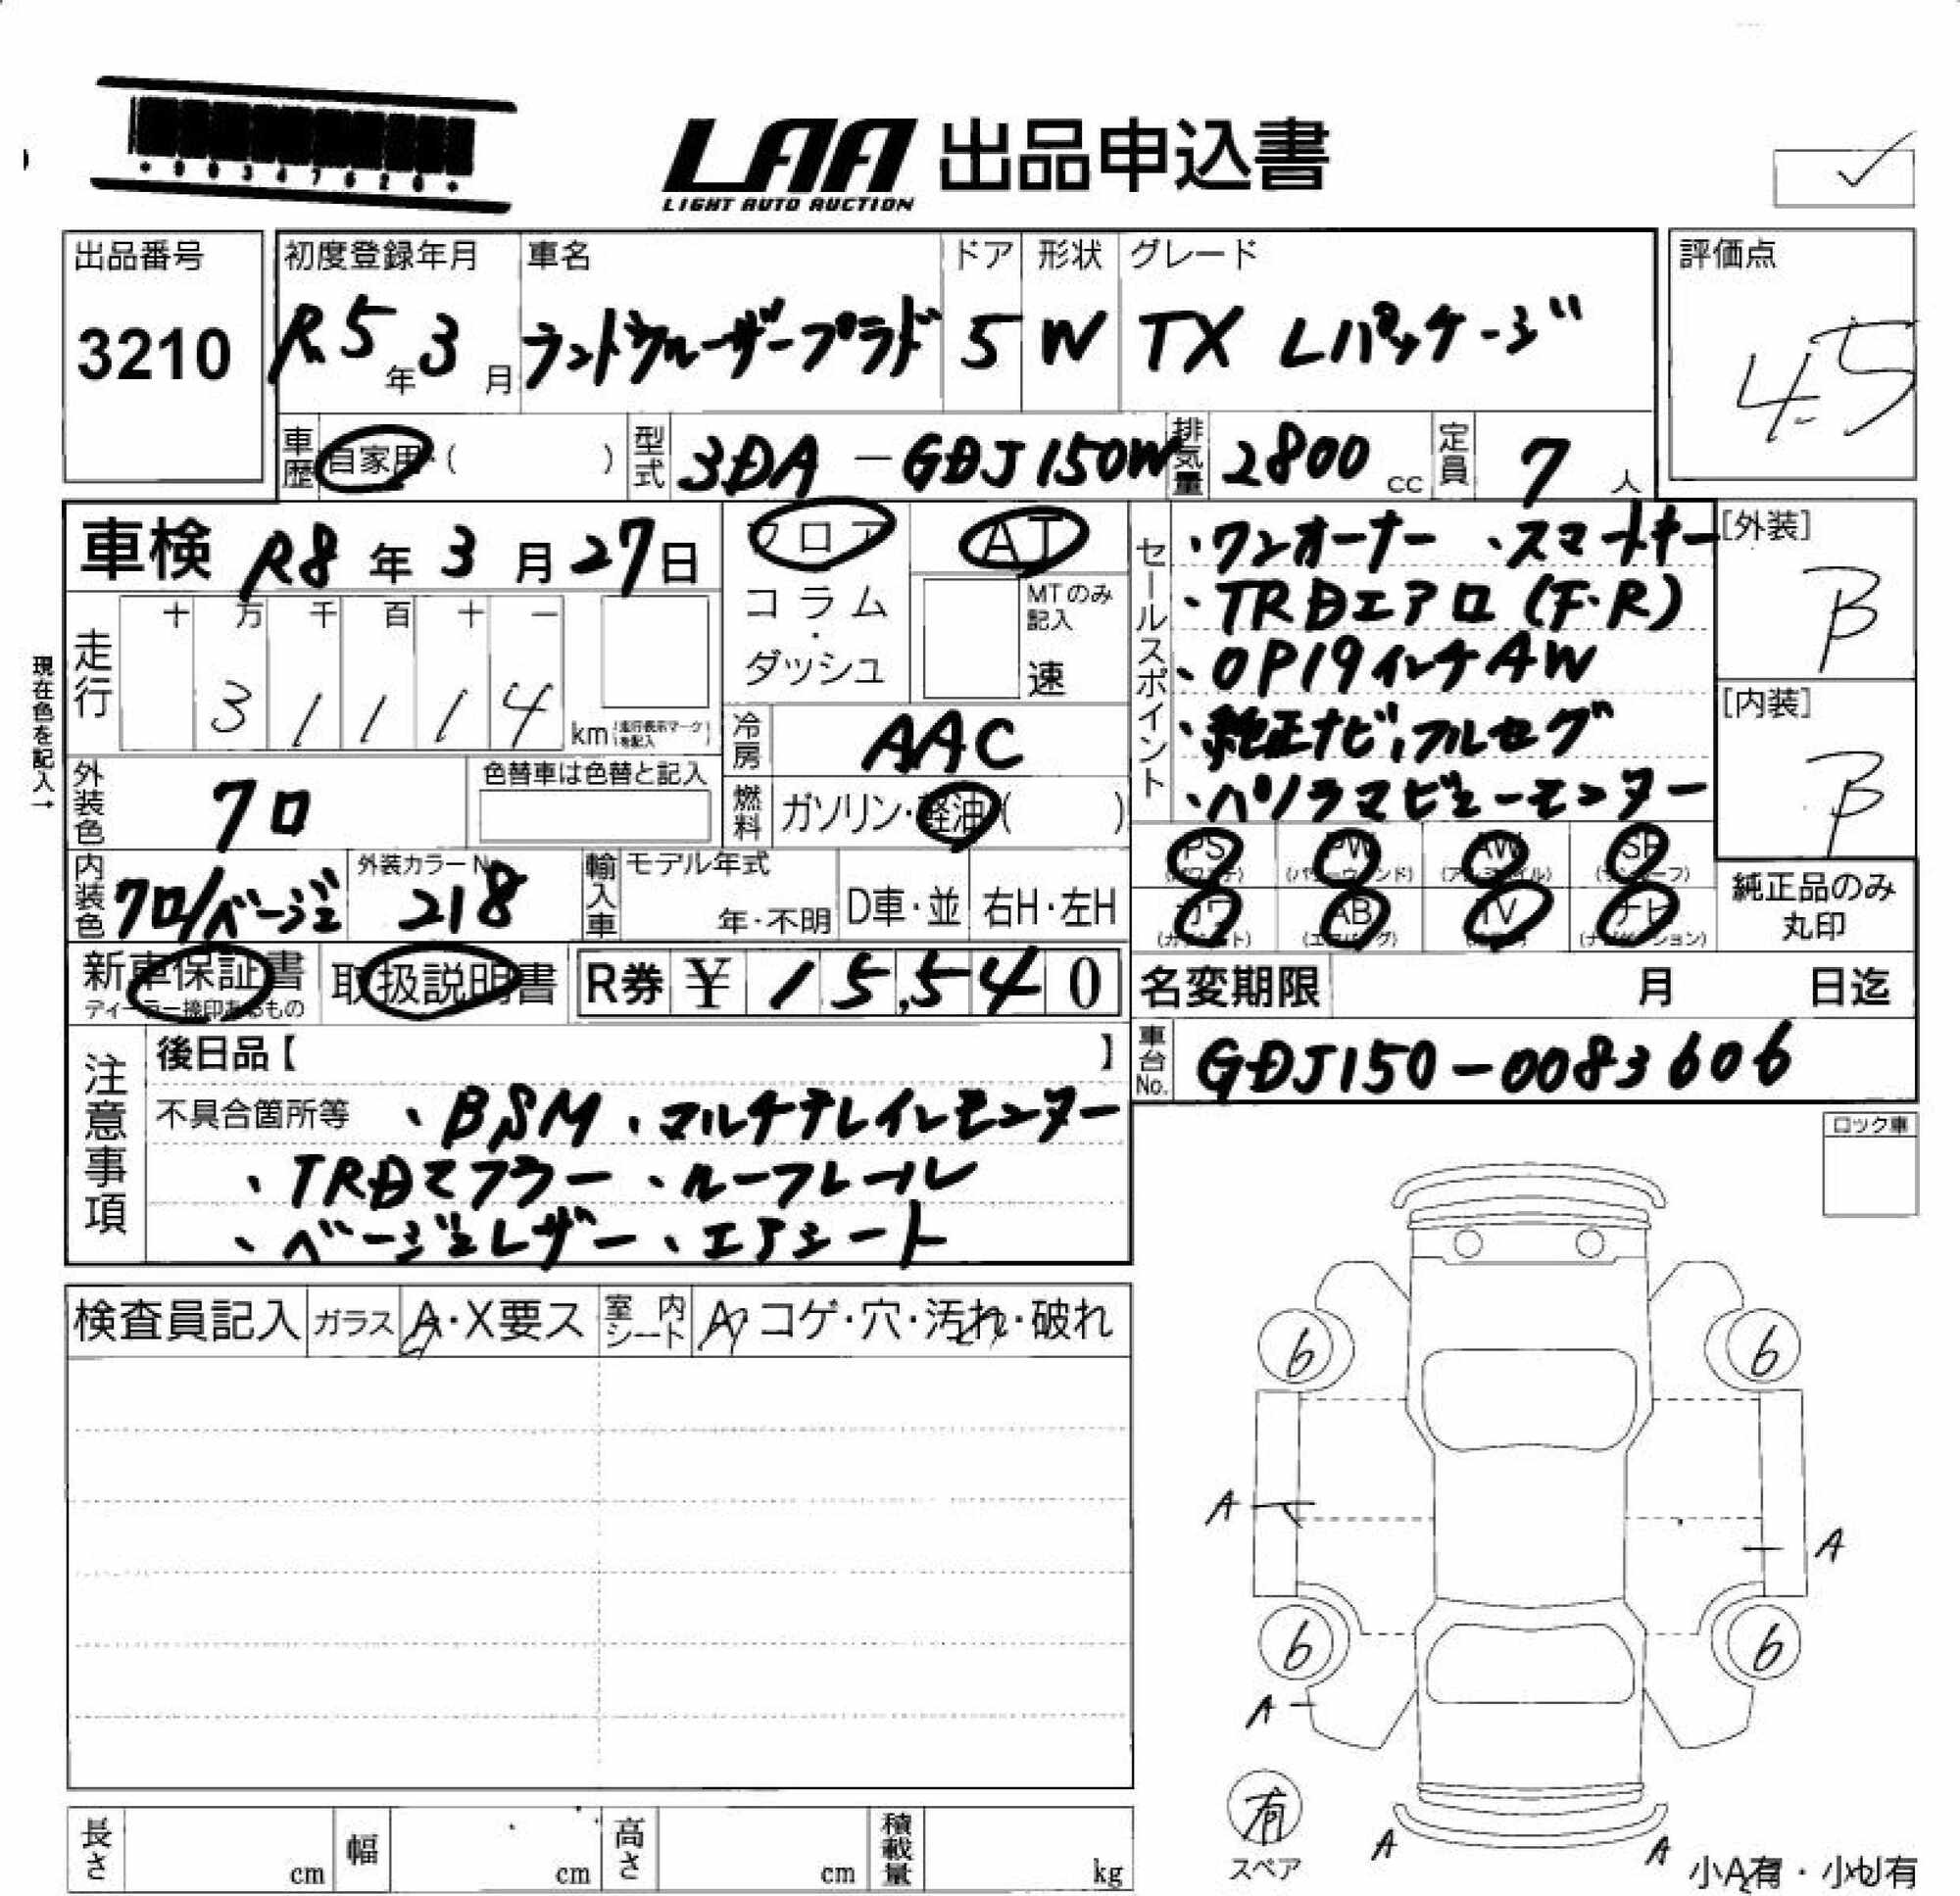 LAA 出品申込書
LIGHT AUTO AUCTION
出品番号
3210
初度登録年月
R5年3月
車名
ランドクルーザープラド
ドア
5
形状
W
グレード
TX Lパッケージ
評価点
4.5
車歴 自家用・( )
型式 3DA-GDJ150W
排気量 2800cc
定員 7人
車検 R8年3月27日
現在色を記入→
走行
十万千百十一
31114
km(走行表示マークを記入)
フロア
コラム・ダッシュ
AT
MTのみ記入
速
冷房 AAC
燃料 ガソリン・軽油( )
外装色 クロ
色替車は色替と記入
内装色 クロ/ベージュ
外装カラーNo.
218
輸入車
モデル年式
年・不明
D車・並
右H・左H
セールスポイント
・ワンオーナー ・スマートキー
・TRDエアロ(F・R)
・OP19インチAW
・純正ナビ,フルセグ
・パノラマビューモニター
[外装]
B
[内装]
B
PS PW AW SR
カワ AB TV ナビ
純正品のみ丸印
新車保証書
ディーラー捺印あるもの
取扱説明書
R券 ¥ 15,540
名変期限 月 日迄
車台No. GDJ150-0083606
注意事項
後日品【 】
不具合箇所等 ・BSM ・マルチテレインモニター
・TRDマフラー ・ルーフレール
・ベージュレザー ・エアシート
ロック車
検査員記入 ガラス A・X要ス 室内シート A コゲ・穴・汚れ・破れ
6 6
A A
6 6
A
有
スペア
A A
小A有・小U有
長さ cm 幅 cm 高さ cm 積載量 kg